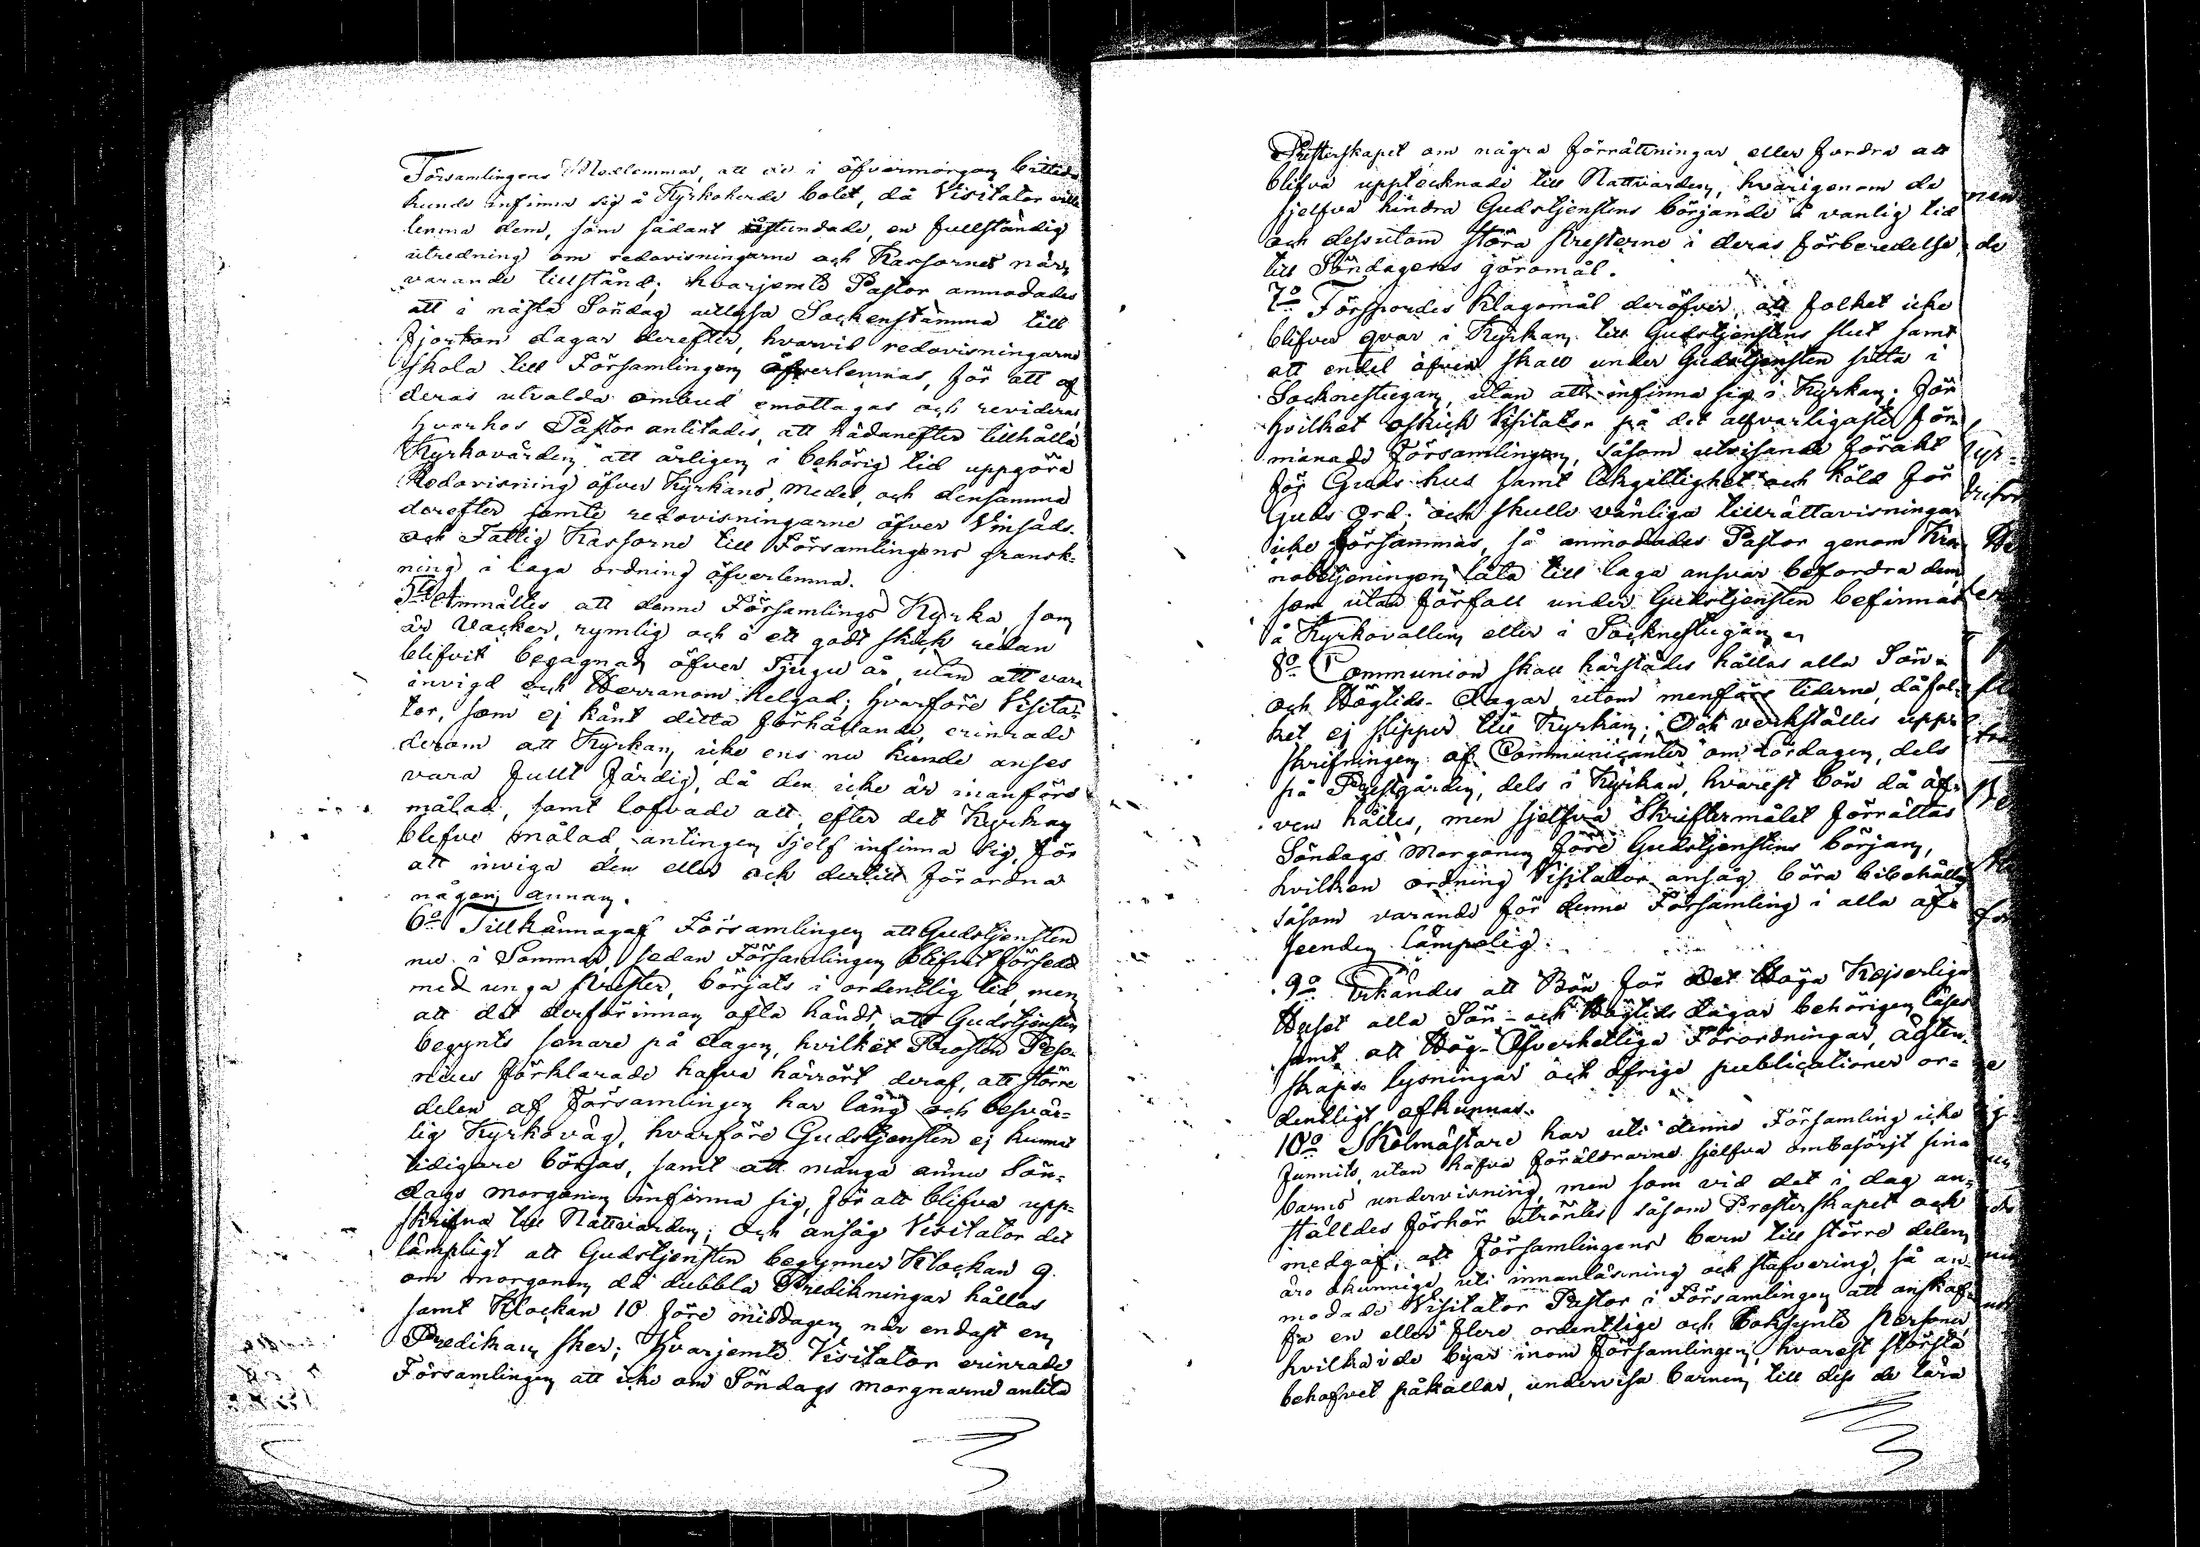 Församlingens Medlemmar, att de i öfvermorgon bittida
kunde infinna sig å Kyrkoherde bolet, då Visitator ville
lemna dem, som sådant åstundade, en fullständig
utredning om redovisningarne och Kassornes när,,
varande tillstånd; hvarjemte Pastor anmodades
att i nästa Söndag utlysa Sockenstämma till
fjorton dagar derefter, hvarvid redovisningarne
skola till Församlingen öfverlemnas, för att af
deras utvalda ombud emottagas och revideras,
hvarhos Pastor anlitades, att hädanefter tillhålla
Kyrkovärden att årligen i behörig tid uppgöra
Redovisning öfver Kyrkans medel, och densamma
derefter jemte redovisningarne öfver Vinsäds-
och Fattig Kassorne till Församlingens gransk-
ning i laga ordning öfverlemna.
5to Anmältes att denne Församlings Kyrka, som
är Vacker, rymlig och i ett godt skick redan
blifvit begagnad öfver tjugu år, utan att vara
invigd och Herranom helgad; hvarföre Visita-
tor, som ej känt detta förhållande, erinrade
derom att Kyrkan icke ens nu kunde anses
vara fullt färdig, då den icke är inanföre
målad, samt lofvade att, efter det Kyrkan
blefve målad, antingen sjelf infinna sig, för
att inviga den eller och dertill förordna
någon annan.
6o Tillkännagaf Församlingen att Gudstjensten
nu i Sommar, sedan Församlingen blifvit försedd
med unga Prester, börjats i ordentlig tid, men
att det derförinnan ofta händt, att Gudstjensten
begynts senare på dagen, hvilket Prosten
förklarade hafva härrört deraf, att större
delen af Församlingen har lång och besvär-
lig Kyrkoväg, hvarföre Gudstjensten ej kunnat
tidigare börjas, samt att många ännu Sön-
dags morgonen infinna sig, för att blifva upp-
skrifna till Nattvarden; Och ansåg Visitator det
lämpligt att Gudstjensten begynnes Klockan 9.
om morgonen då dubbla Predikningar hållas
samt Klockan 10 före middagen när endast en
Predikan sker; Hvarjemte Visitator erinrade
Församlingen att icke om Söndags morgnarne anlita
Presterskapet om några förrättningar eller fordra att
blifva upptecknade till Nattvarden, hvarigenom de
sjelfva hindra Gudstjenstens börjande å vanlig tid
och dessutom störa Presterne i deras förberedelse
till Söndagens göromål.
7o Förspordes klagomål deröfver, att folket icke
blifver qvar i Kyrkan till Gudstjenstens slut samt
att endel öfven skall under Gudstjensten sitta i
Socknestugan, utan att infinna sig i Kyrkan; för
hvilket oskick Visitator på det alfvarligaste för-
manade Församlingen, såsom utvisande förakt
för Guds hus samt likgiltighet och köld för
Guds Ord; och skulle vänliga tillrättavisningar
icke försammas, så anmodades Pastor genom Kro-
nobetjeningen låta till laga ansvar befordra dem,
som utan förfall under Gudstjensten befinnas
å Kyrkovallen eller i Socknestugan.
8o Communion skall härstädes hållas alla Sön-
och Högtids-dagar utom menföre tiderne, då fol-
ket ej slipper till Kyrkan; Och verkställes upp-
skrifningen af Communicanter om Lördagen, dels
på Prestgården, dels i Kyrkan, hvarest bön då äf-
ven hålles, men sjelfva Skriftermålet förrättas
Söndags morgonen före Gudstjenstens början,
hvilken ordning Visitator ansåg böra bibehållas
såsom varande för denne Församling i alla af-
seenden lämpelig.
9o Erkändes att Bön för det Höga Kejserliga
Huset alla Sön- och Högtids dagar behörigen läses
samt att Hög-Öfverhetliga Förordningar, ägten-
skaps lysningar och öfrige publicationer or-
dentligt afkunnas.
10o Skolmästare har uti denne Församling icke
funnits, utan hafva föräldrarne sjelfva ombesörjt sina
barns undervisning, men som vid det i dag an-
stälda förhör utröntes såsom Presterskapet ock
medgaf, att Församlingens barn till större delen
äro okunnige uti innanläsning och stafvering, så an-
modade Visitator Pastor i Församlingen att anskaf-
fa en eller flere ordentlige och boksynte personer,
hvilka i de byar inom Församlingen, hvarest största
behofvet påkallar, undervisa barnen till dess de lära